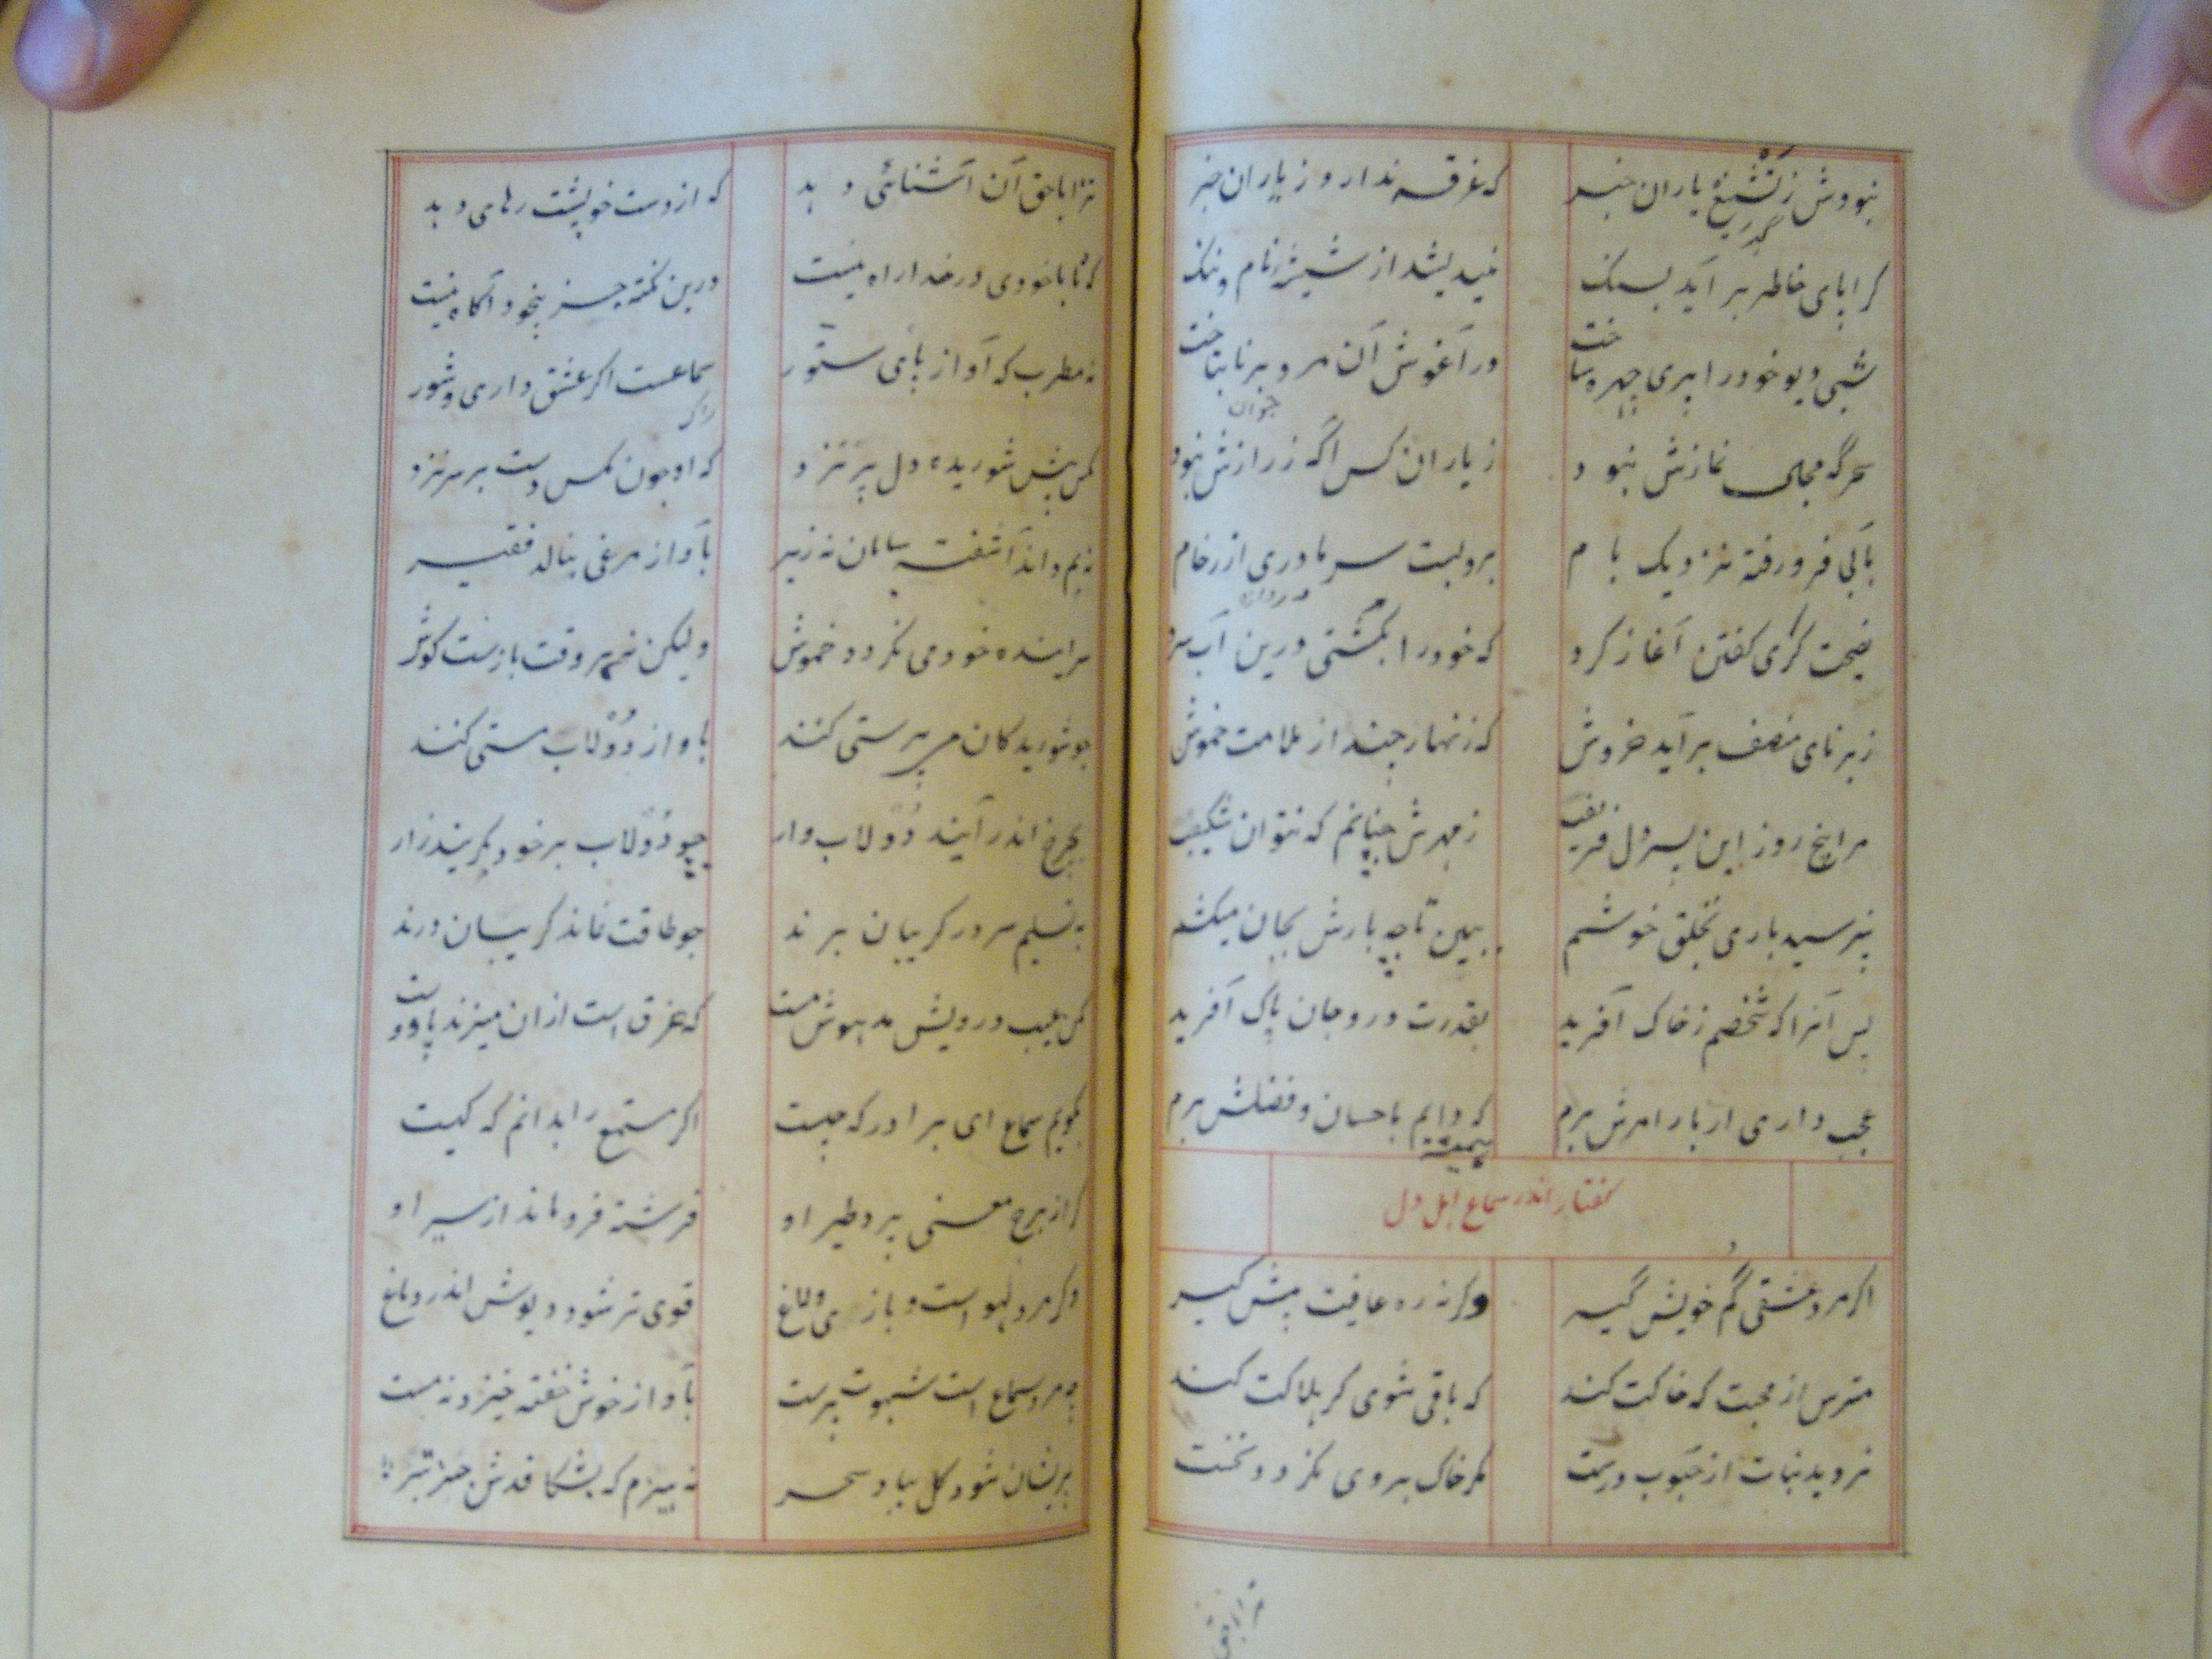 نبودش ز تشنیع یاران خبر که غرقه ندارد ز باران خبر
کرا پای خاطر برآید بسنک نیندیشد از شیشه نام و ننک
شبی دیو خود را پری چهره ساخت در آغوش آن مرد برنا بتاخت
سحرگه مجال نمازش نبود ز یاران کس آگه ز رازش نبود
بآبی فرو رفته نزدیک بام برو بسته سرما دری از رخام
نصیحت کری گفتن آغاز کرد که خود را بکشتی درین آب سرد
ز برنای منصف برآید خروش که زنهار چند از ملامت خموش
مرا پنج روز این پسر دل فریفت ز مهرش چنانم که نتوان شکیفت
نپرسید باری بخلق خوشم ببین تا چه بارش بجان میکشم
پس آنرا که شخصم ز خاک آفرید بقدرت درو جان پاک آفرید
عجب داری ار بار امرش برم که دایم باحسان و فضلش برم
گفتار اندر سماع اهل دل
اکر مرد عشقی گم خویش گیر وکر نه ره عافیت پیش گیر
مترس از محبت که خاکت کند که باقی شوی گر هلاکت کند
نروید نبات از حبوب درست مکر خاک بروی بگردد نخست
ترا با حق
ترا با حق آن آشنائی دهد که از دست خویشت رهای دهد
که تا با خودی در خدا راه نیست درین نکته جز بیخود آگاه نیست
نه مطرب که آواز پای ستور سماعست اکر عشق داری و شور
مکس پیش شوریده دل پر نزد که او چون مکس دست بر سر نزد
نه بم داند آشفته سامان نه زیر بآواز مرغی بنالد فقیر
سراینده خود می نکردد خموش ولیکن نه هر وقت بازست کوش
چو شوریدکان می پرستی کنند بآواز دولاب مستی کنند
بچرخ اندر آیند دولاب وار چو دولاب بر خود بکریند زار
به تسلیم سر در کریبان برند چو طاقت نماند کریبان درند
مکن عیب درویش مدهوش مست که غرق است از آن میزند پا و دست
نکویم سماع ای برادر که چیست اکر مستمع را بدانم که کیست
کر از برج معنی پرد طیر او فرشته فرو ماند از سیر او
وکر مرد لهو است و بازی و لاغ قوی تر شود دیوش اندر دماغ
چه مرد سماع است شهوت پرست بآواز خوش خفته خیزد نه مست
پریشان شود کل بباد سحر نه هیزم که نشکافدش جز تبر